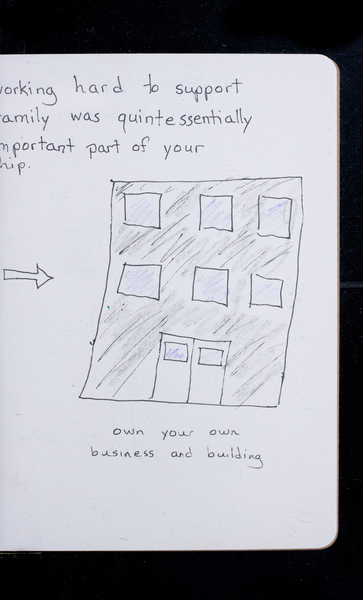 orking hard to support
amily was quintessentially
mportant part of your
hip.
own your own
business and building